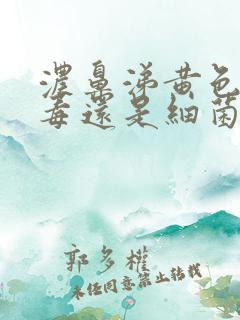 濃鼻涕黄色
毒還是細菌
郭多權
未经同意禁止转载